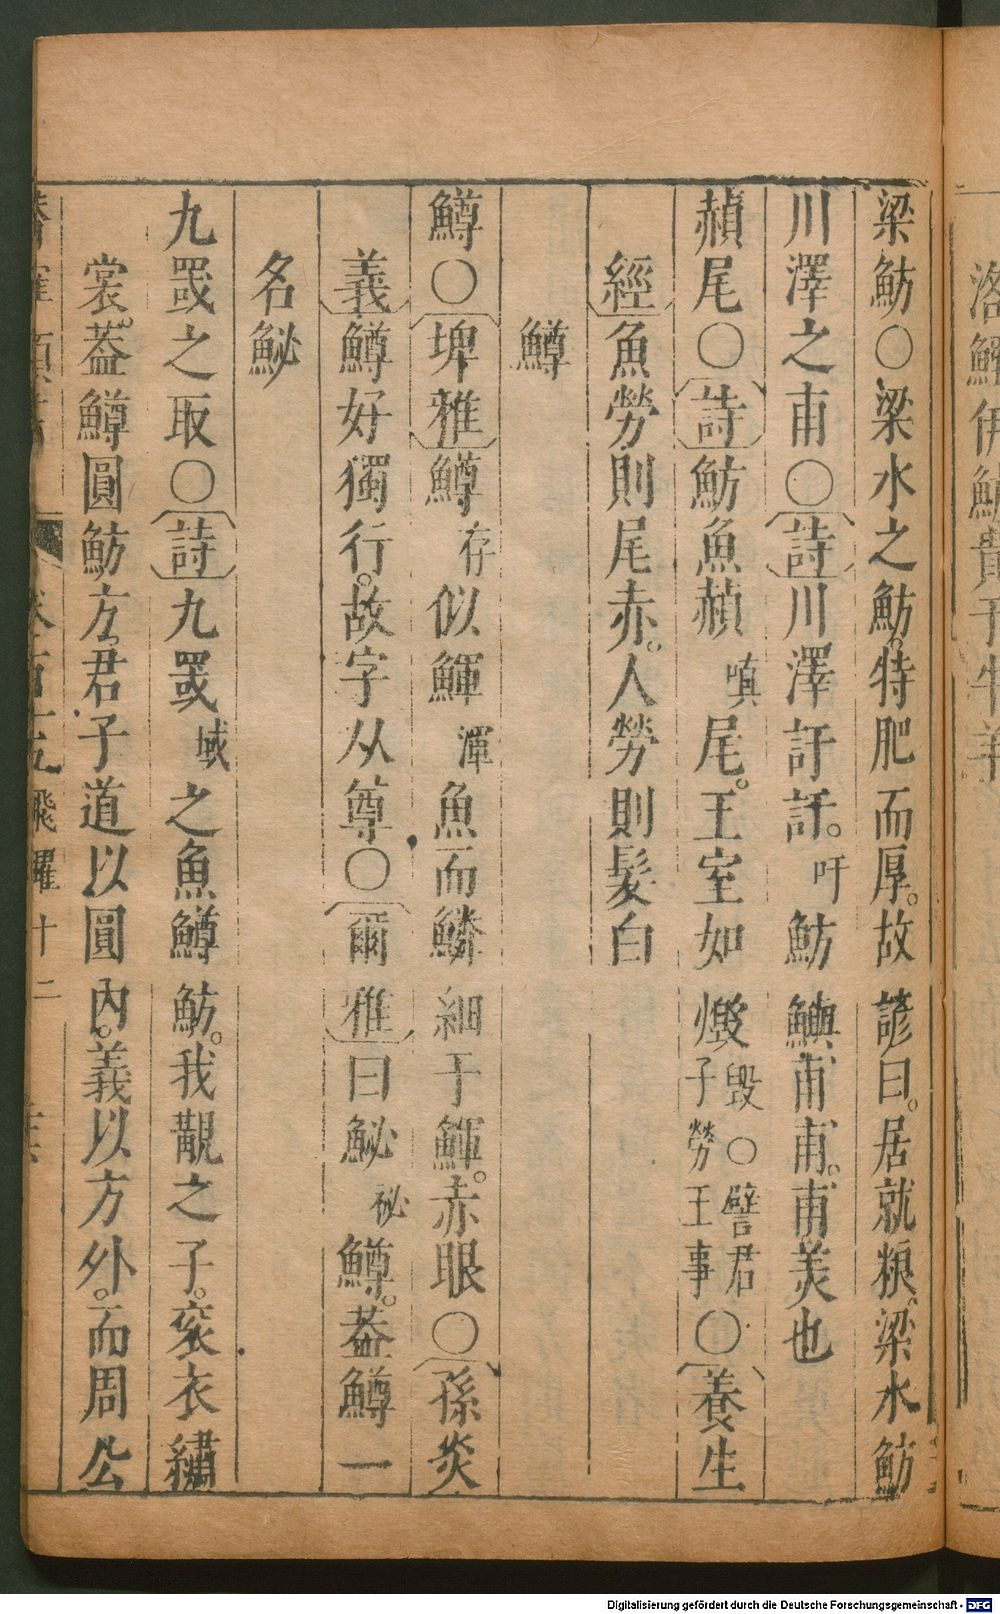 梁魴○梁水之魴。特肥而厚。故諺曰。居就粮。梁水魴
川澤之甫○詩川澤訏訏。吁魴鱮甫甫。甫美也
赬尾○詩魴魚赬嗔尾。王室如燬毀○譬君子勞王事○養生
經魚勞則尾赤。人勞則髮白
鱒
鱒○埤雅鱒存似鯶渾魚而鱗細于鯶。赤眼○孫炎
義鱒好獨行。故字从尊○爾雅曰鮅祕鱒。葢鱒一
名鮅
九罭之取○詩九罭域之魚鱒魴。我觀之子。衮衣繡
裳。葢鱒圓魴方。君子道以圓內。義以方外。而周公
飛躍十二
Digitalisierung gefördert durch die Deutsche Forschungsgemeinschaft - DFG